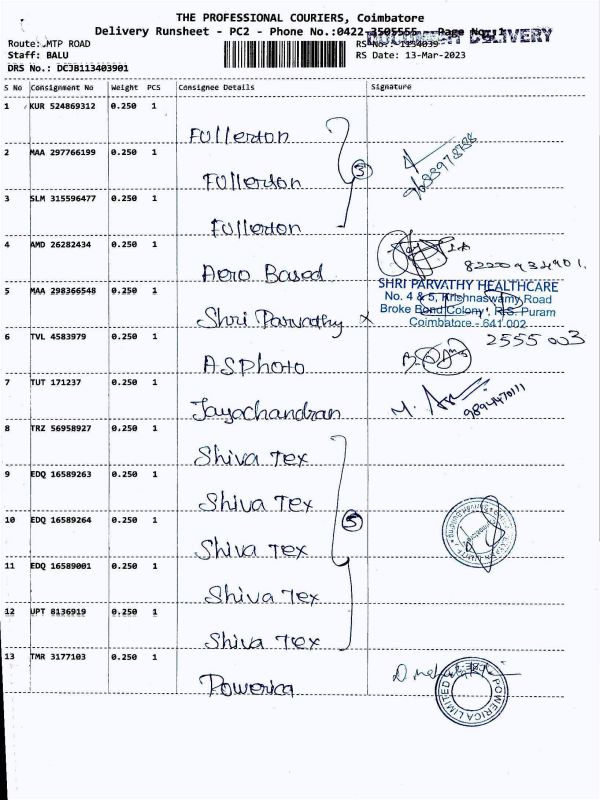 THE PROFESSIONAL COURIERS, Coimbatore
Delivery Runsheet - PC2 - Phone No.:0422-3505555 Page No. 1
DOCUMENT DELIVERY
Route: MTP ROAD
RS No.: 1134039
Staff: BALU
RS Date: 13-Mar-2023
DRS No.: DCJB113403901
S No Consignment No Weight PCS Consignee Details Signature
1 KUR 524869312 0.250 1
Fullerton
2 MAA 297766199 0.250 1
Fullerton
3
3 SLM 315596477 0.250 1
Fullerton
4 AMD 26282434 0.250 1
Aero Based
8220934901.
5 MAA 298366548 0.250 1
SHRI PARVATHY HEALTHCARE
No. 4 & 5, Krishnaswamy Road
Broke Bond Colony, R.S. Puram
Coimbatore - 641 002
Shri Parvathy x
6 TVL 4583979 0.250 1
2555 003
ASPhoto
7 TUT 171237 0.250 1
Jayachandran
9894470111
8 TRZ 56958927 0.250 1
Shiva Tex
9 EDQ 16589263 0.250 1
Shiva Tex
10 EDQ 16589264 0.250 1
5
Shiva Tex
11 EDQ 16589001 0.250 1
Shiva Tex
12 UPT 8136919 0.250 1
Shiva Tex
13 TMR 3177103 0.250 1
Powerica
POWERICA LIMITED